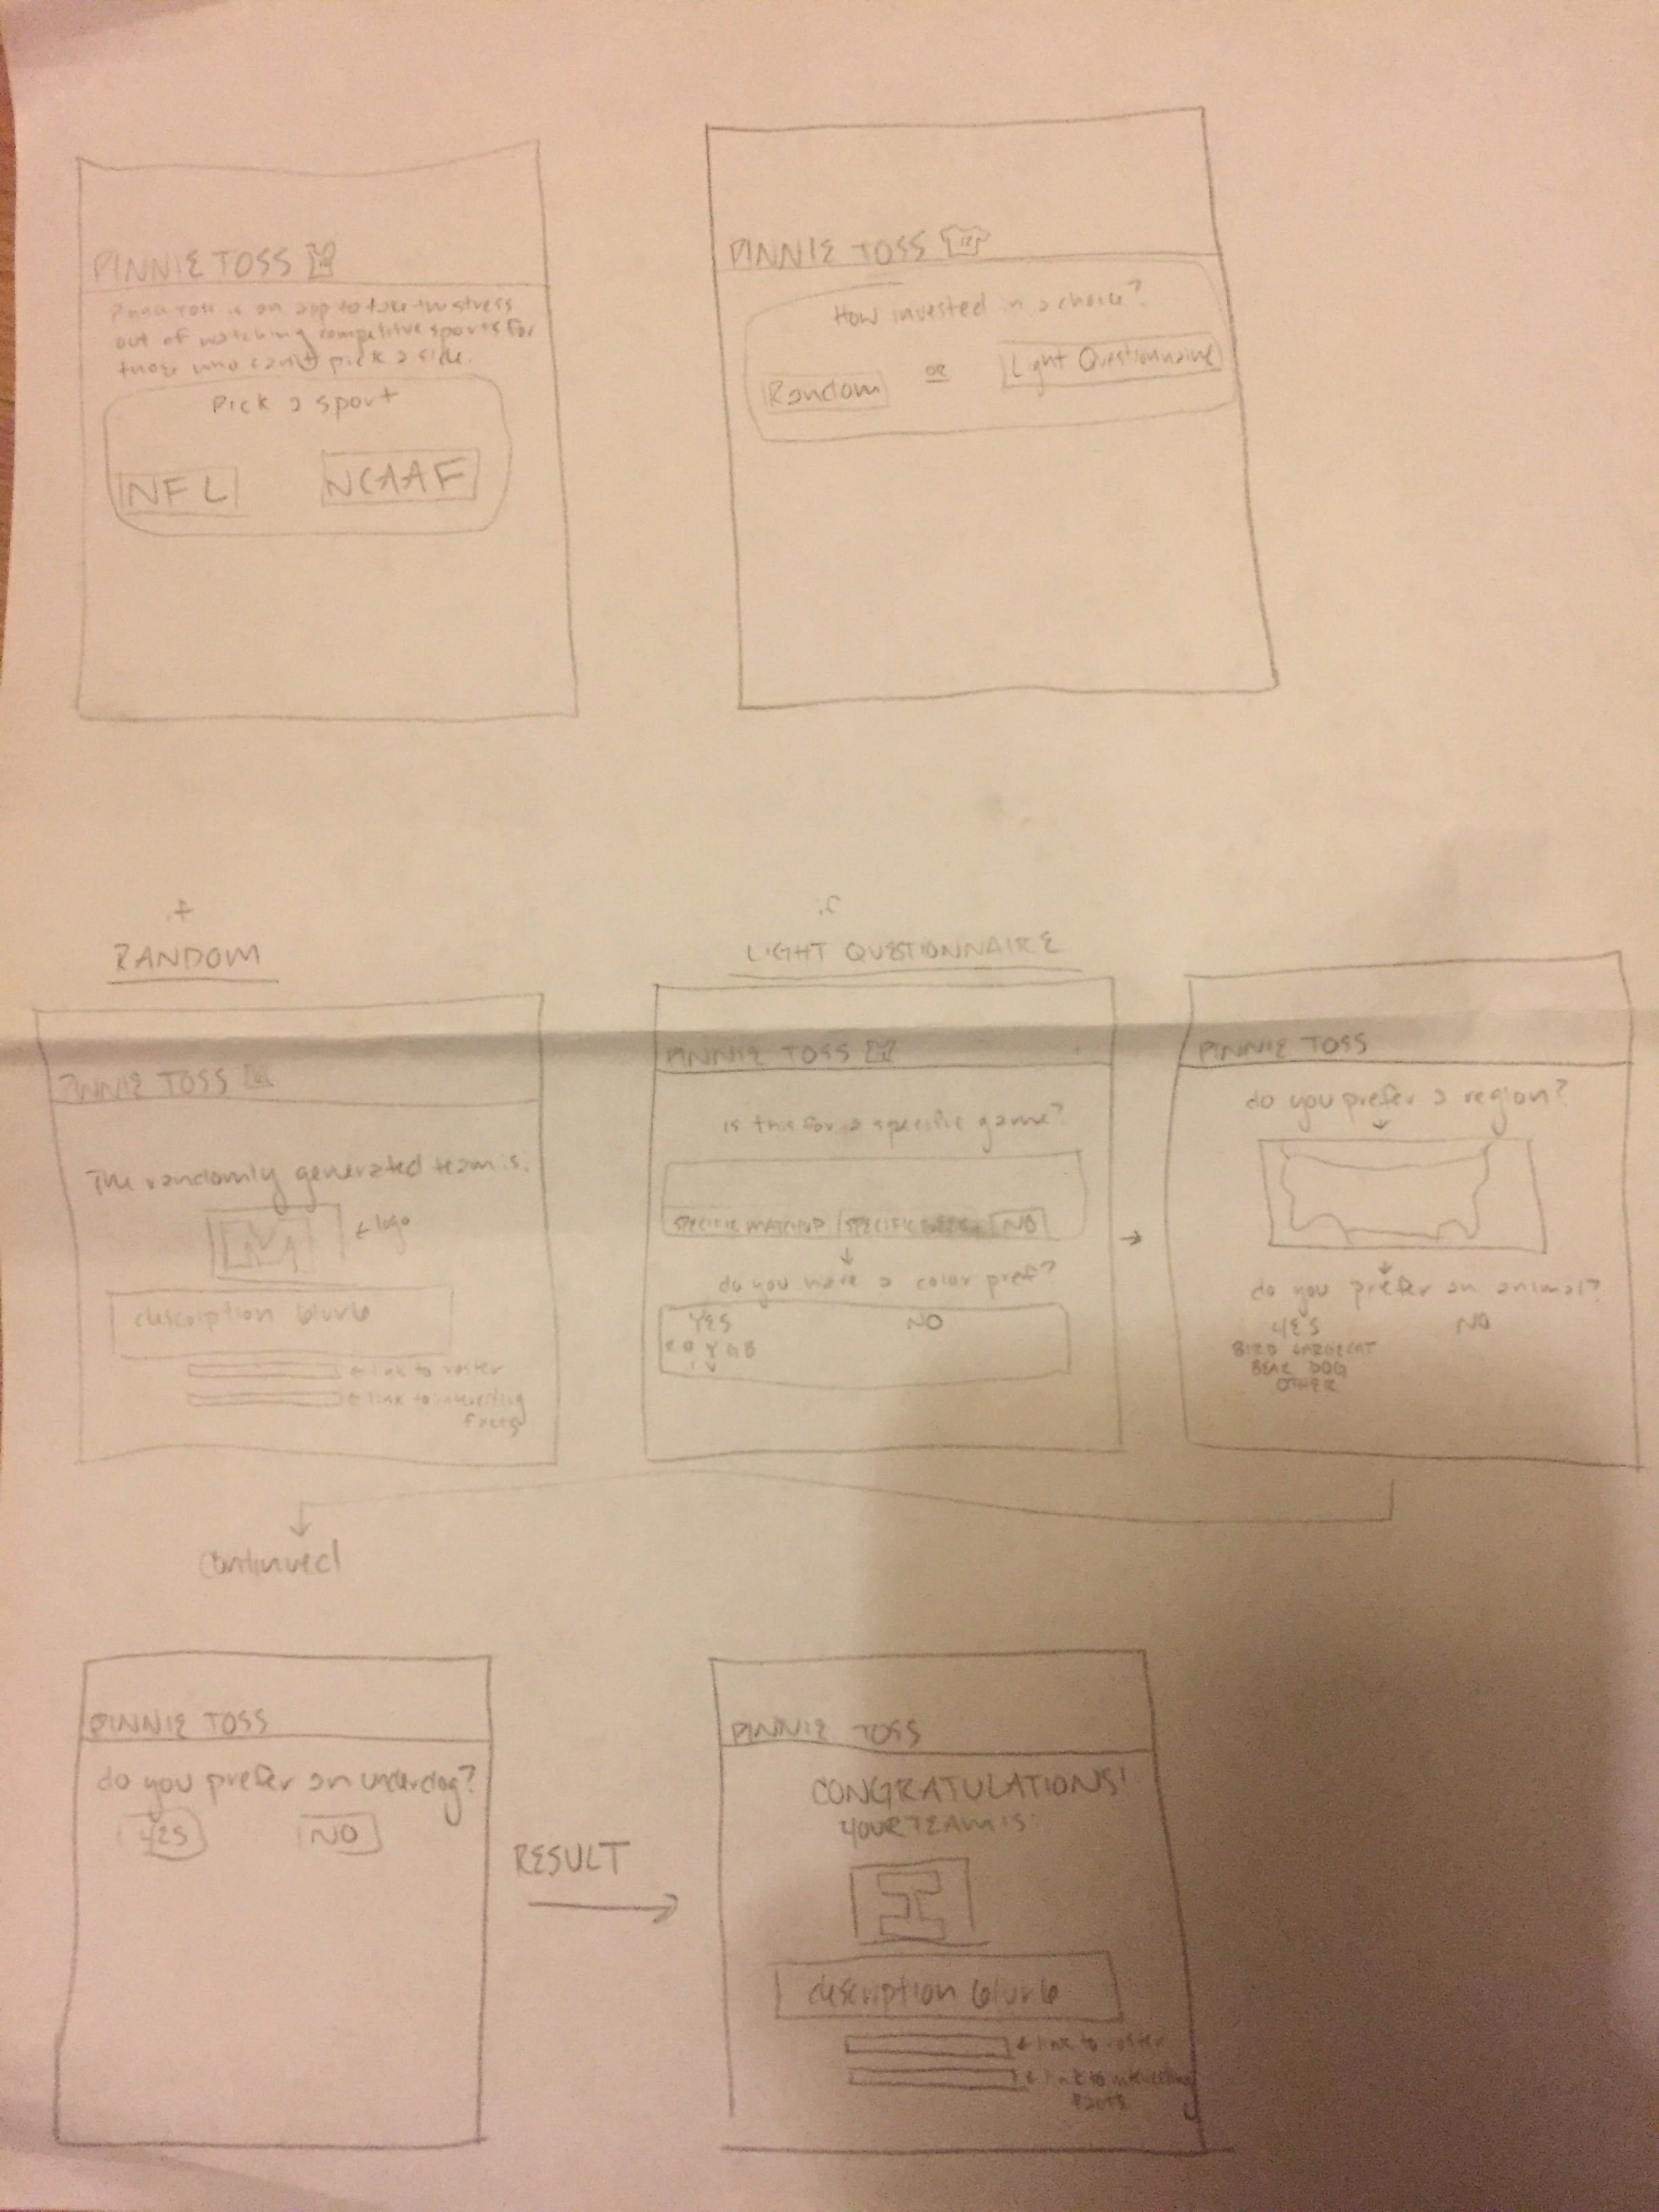 PINNIE TOSS
Pinnie Toss is an app to take the stress
out of watching competitive sports for
those who can't pick a side.
Pick a sport
NFL NCAAF
PINNIE TOSS
How invested in a choice?
Random OR Light Questionnaire
if
RANDOM
PINNIE TOSS
The randomly generated team is:
← logo
description blurb
← link to roster
← link to interesting
facts
if
LIGHT QUESTIONNAIRE
PINNIE TOSS
is this for a specific game?
SPECIFIC MATCHUP SPECIFIC NO
do you have a color pref?
YES NO
R O Y G B
I V
PINNIE TOSS
do you prefer a region?
do you prefer an animal?
YES NO
BIRD LARGE CAT
BEAR DOG
OTHER
continued
PINNIE TOSS
do you prefer an underdog?
YES NO
RESULT
PINNIE TOSS
CONGRATULATIONS!
YOUR TEAM IS:
description blurb
← link to roster
← link to interesting
facts